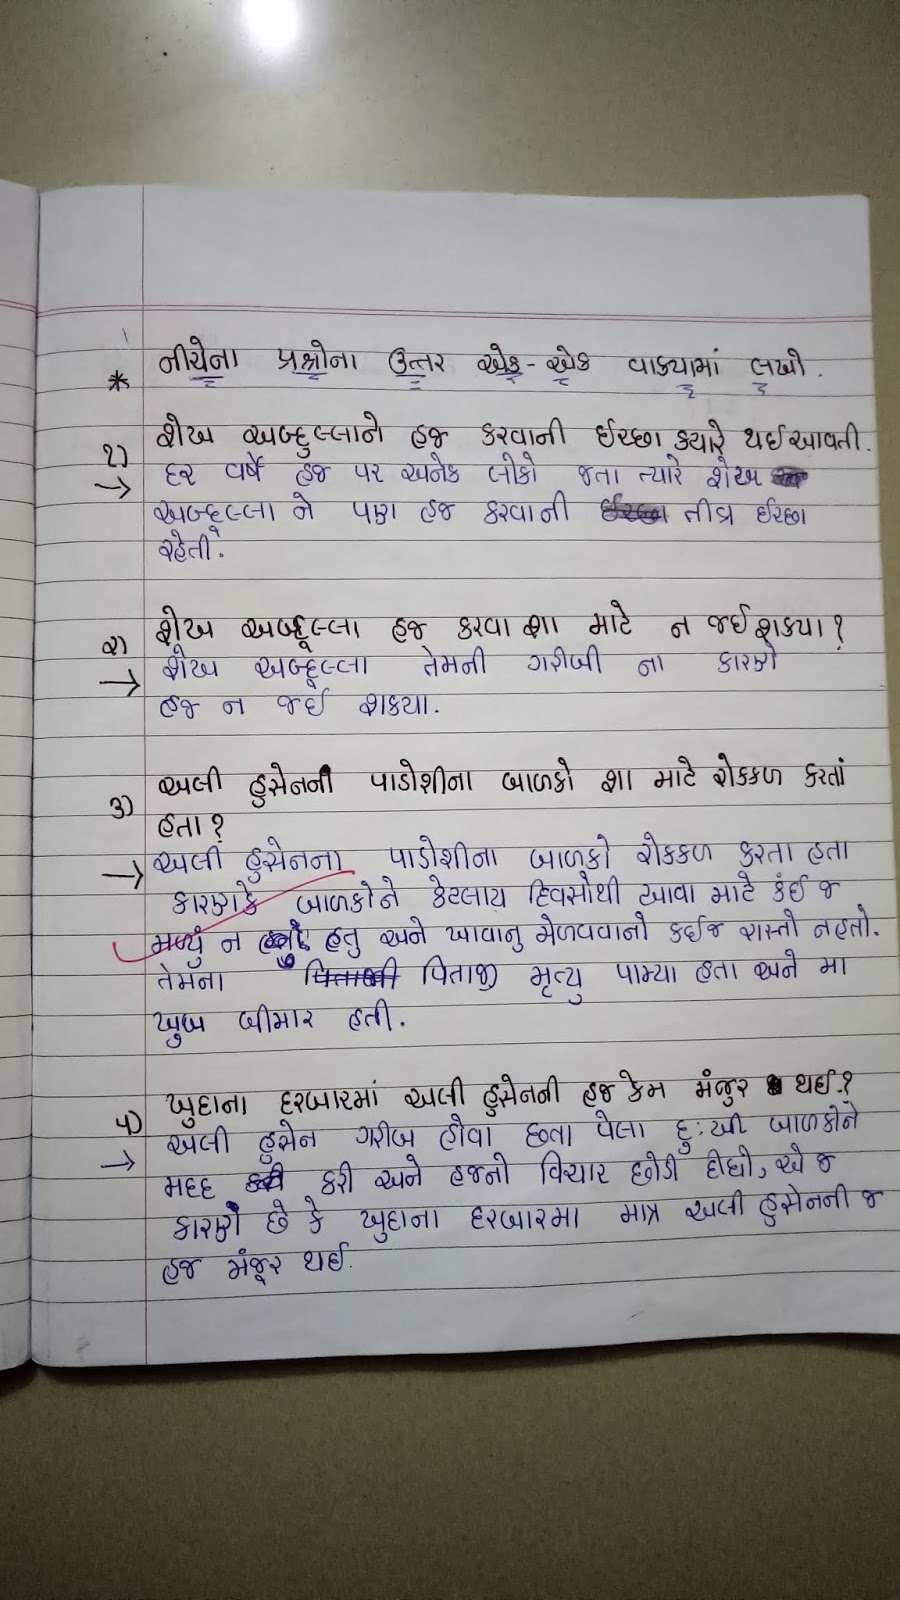 * નીચેના પ્રશ્નોના ઉત્તર એક-એક વાક્યામાં લખો.
૧) શેખ અબ્દુલ્લાને હજ કરવાની ઈચ્છા ક્યારે થઈ આવતી.
→ દર વર્ષે હજ પર અનેક લોકો જતા ત્યારે શેખ
અબ્દુલ્લા ને પણ હજ કરવાની તીવ્ર ઈચ્છા
રહેતી.
૨) શેખ અબ્દૂલ્લા હજ કરવા શા માટે ન જઈ શકયા?
→ શેખ અબ્દૂલ્લા તેમની ગરીબી ના કારણે
હજ ન જઈ શકયા.
૩) અલી હુસેનની પાડોશીના બાળકો શા માટે રોકકળ કરતાં
હતા?
→ અલી હુસેનના પાડોશીના બાળકો રોકકળ કરતા હતા
કારણકે બાળકોને કેટલાય દિવસોથી ખાવા માટે કંઈ જ
મળ્યું ન હતુ અને ખાવાનુ મેળવવાનો કઈજ રાસ્તો નહતો.
તેમના પિતાજી મૃત્યુ પામ્યા હતા અને મા
ખુબ બીમાર હતી.
૪) ખુદાના દરબારમાં અલી હુસેનની હજ કેમ મંજુર થઈ?
→ અલી હુસેન ગરીબ હોવા છતા પેલા દુ:ખી બાળકોને
મદદ કરી અને હજનો વિચાર છોડી દીધો, એ જ
કારણ છે કે ખુદાના દરબારમા માત્ર અલી હુસેનની જ
હજ મંજૂર થઈ.